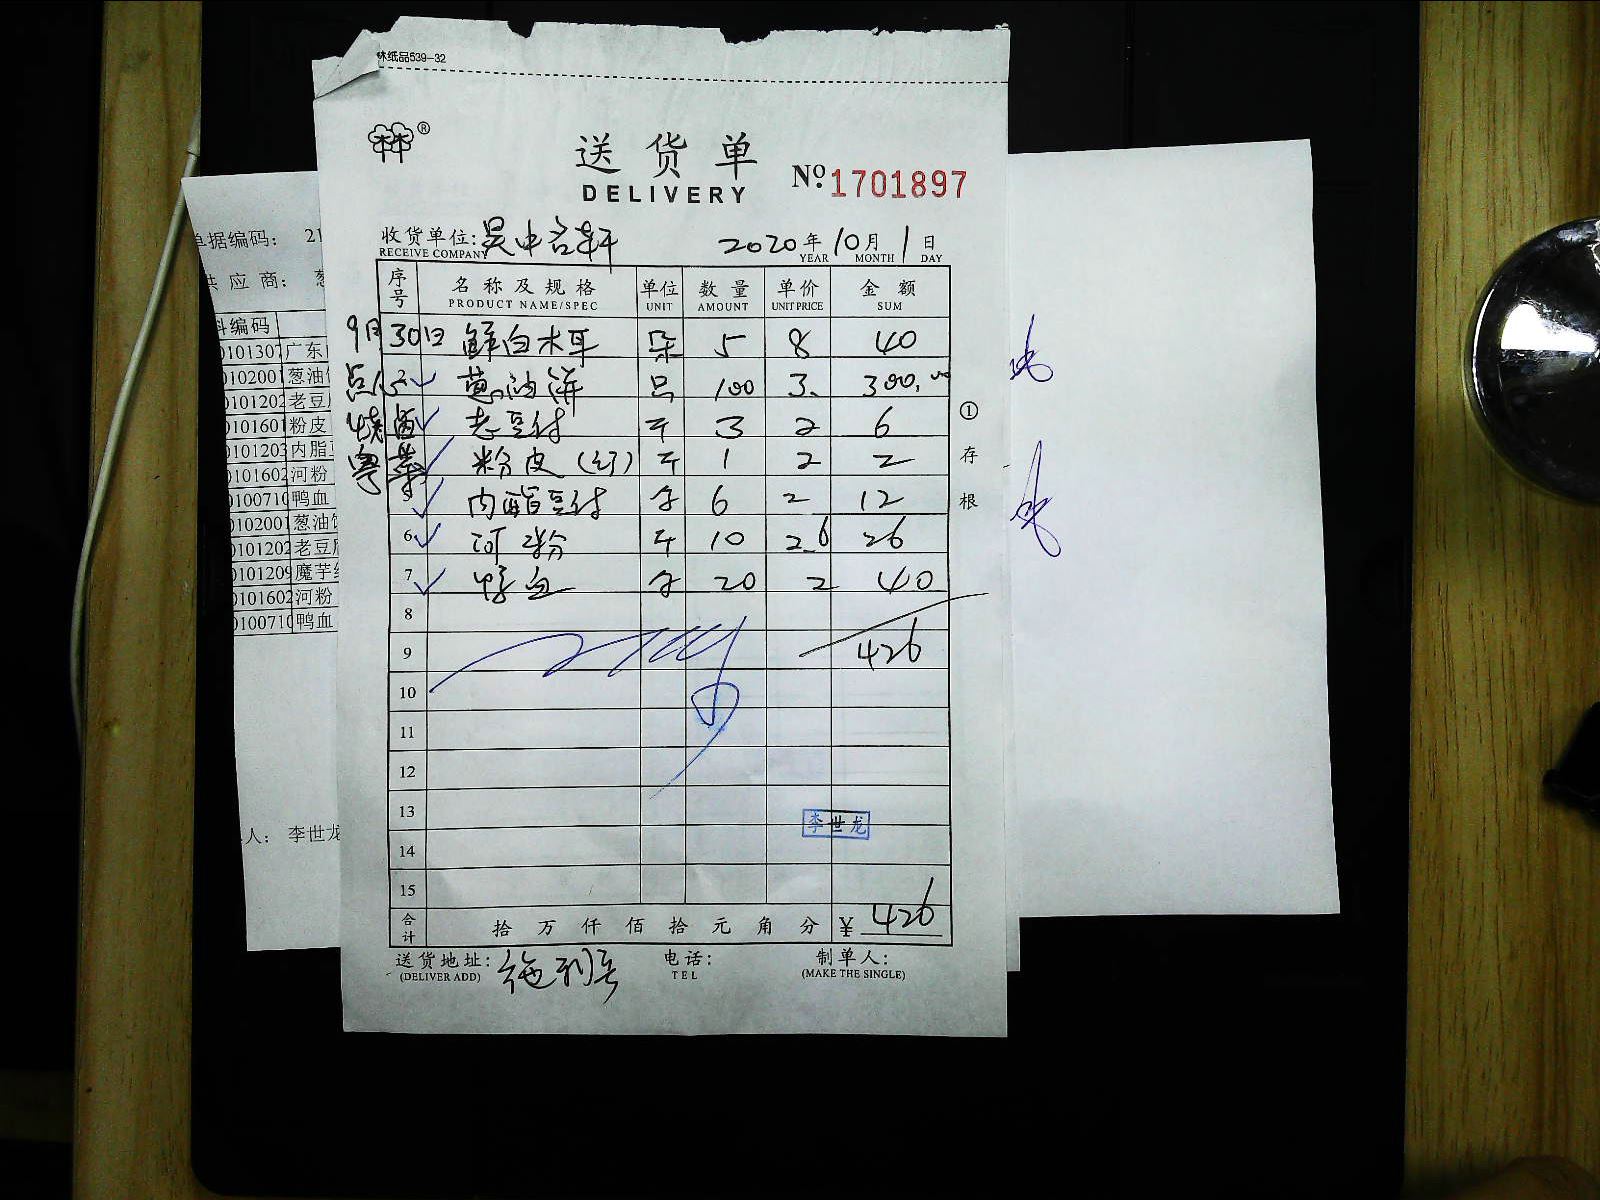 林纸品539-32
®
送货单
DELIVERY
№ 1701897
收货单位:吴中名轩 2020年10月1日
RECEIVE COMPANY YEAR MONTH DAY
序号 名称及规格 单位 数量 单价 金额
PRODUCT NAME/SPEC UNIT AMOUNT UNIT PRICE SUM
9月30日 鲜白木耳 朵 5 8 40
点心 2 葱油饼 只 100 3. 300.00
烧卤 老豆付 斤 3 2 6
粤菜 粉皮(行) 斤 1 2 2
5 内酯豆付 盒 6 2 12
6 河粉 斤 10 2.6 26
7 鸭血 盒 20 2 40
8
9 426
10
11
12
13
李世龙
14
15
合计 拾万仟佰拾元角分 ¥ 426
送货地址: 电话: 制单人:
(DELIVER ADD) TEL (MAKE THE SINGLE)
①存根
单据编码: 21
供应商: 葱
料编码
0101307 广东
0102001 葱油饼
0101202 老豆腐
0101601 粉皮
0101203 内脂豆
0101602 河粉
0100710 鸭血
0102001 葱油饼
0101202 老豆腐
0101209 魔芋
0101602 河粉
0100710 鸭血
人: 李世龙